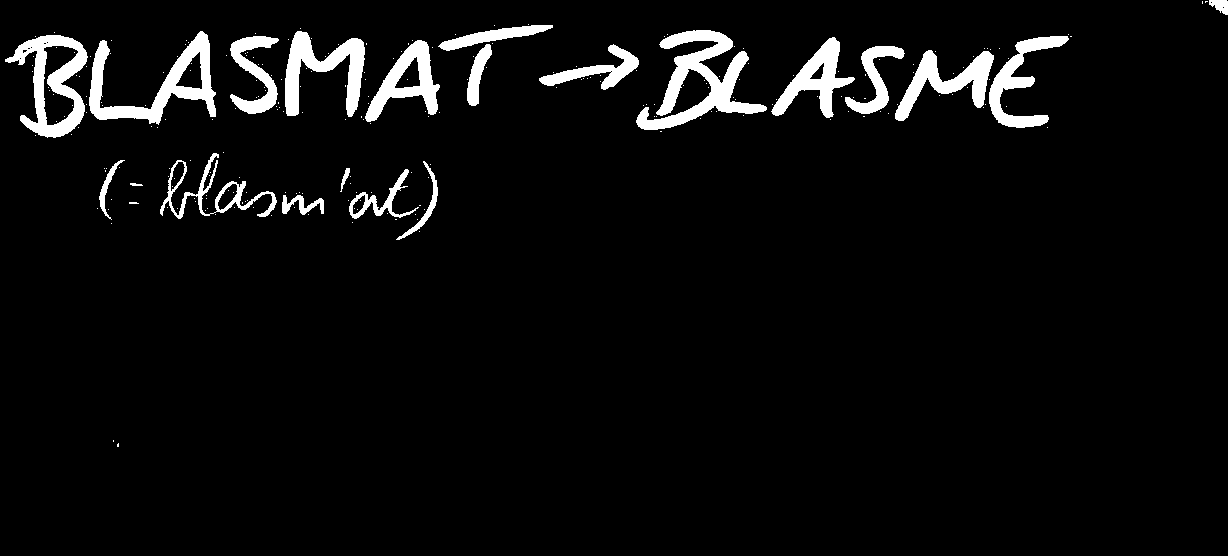 BLASMAT → BLASME
(= blasm'at)